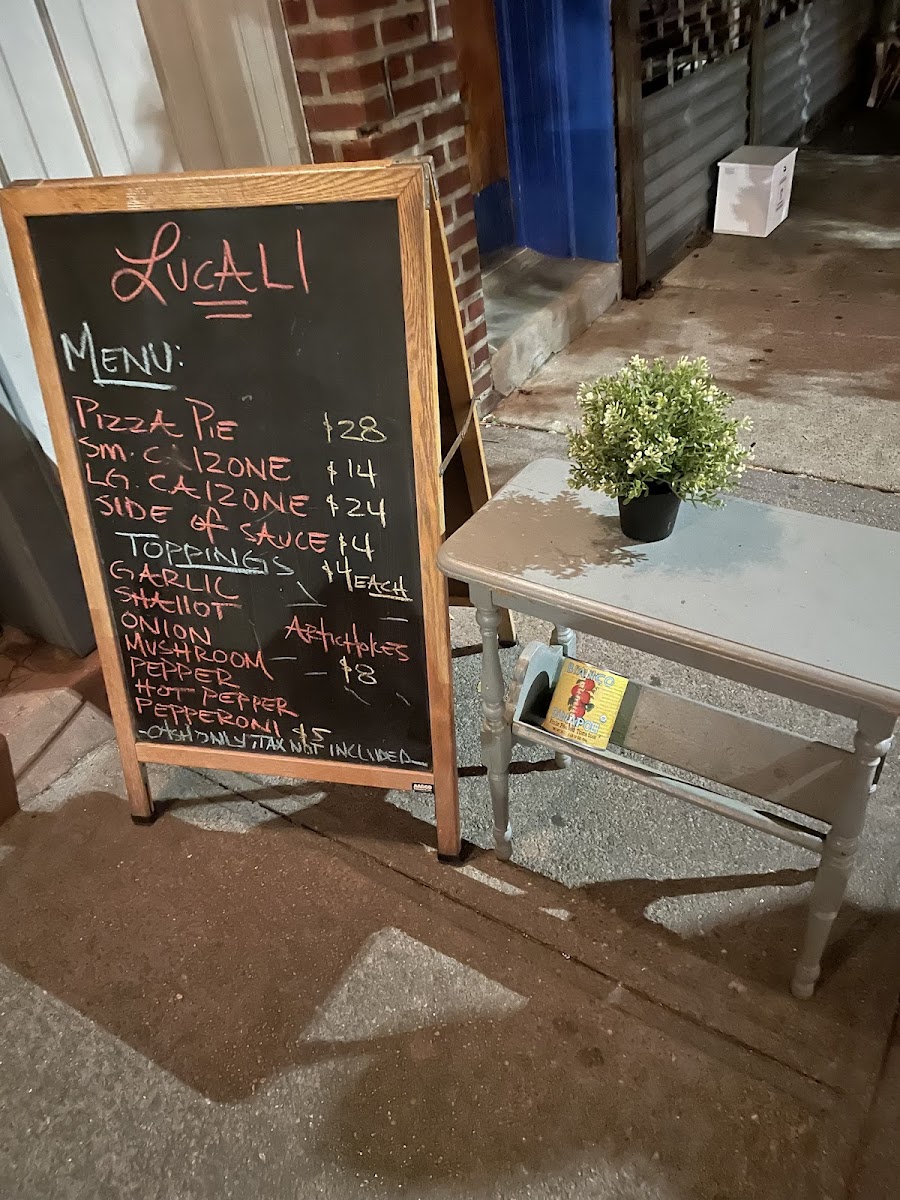 LUCALI
MENU:
PIZZA PIE $28
SM. CALZONE $14
LG. CALZONE $24
SIDE of SAUCE $4
TOPPINGS $4 EACH
GARLIC
SHALLOT
ONION ARTICHOKES
MUSHROOM $8
PEPPER
HOT PEPPER
PEPPERONI $5
-CASH ONLY, TAX NOT INCLUDED-
BIANCO